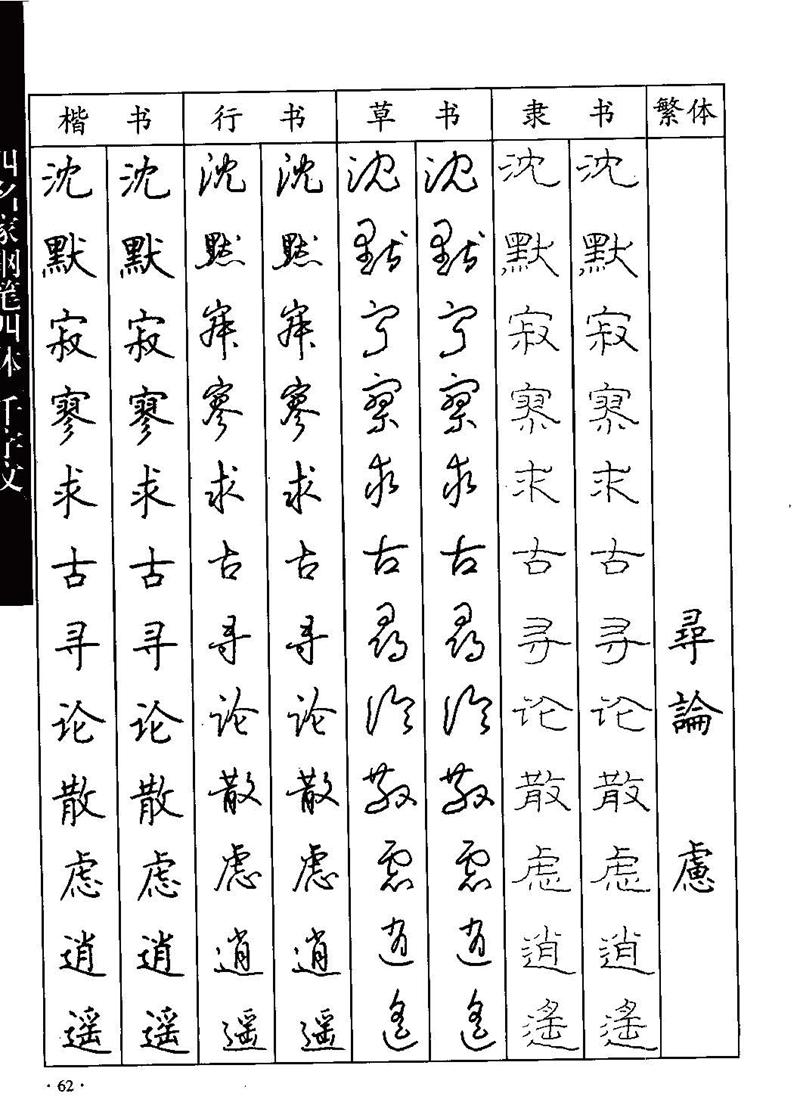 四名家钢笔四体千字文
楷书 行书 草书 隶书 繁体
沈 沈 沈 沈 沈 沈 沈 沈
默 默 默 默 默 默 默 默
寂 寂 寂 寂 寂 寂 寂 寂
寥 寥 寥 寥 寥 寥 寥 寥
求 求 求 求 求 求 求 求
古 古 古 古 古 古 古 古
寻 寻 寻 寻 尋 尋 寻 寻 尋
论 论 论 论 論 論 论 论 論
散 散 散 散 散 散 散 散
虑 虑 虑 虑 慮 慮 虑 虑 慮
逍 逍 逍 逍 逍 逍 逍 逍
遥 遥 遥 遥 遥 遥 遥 遥
·62·